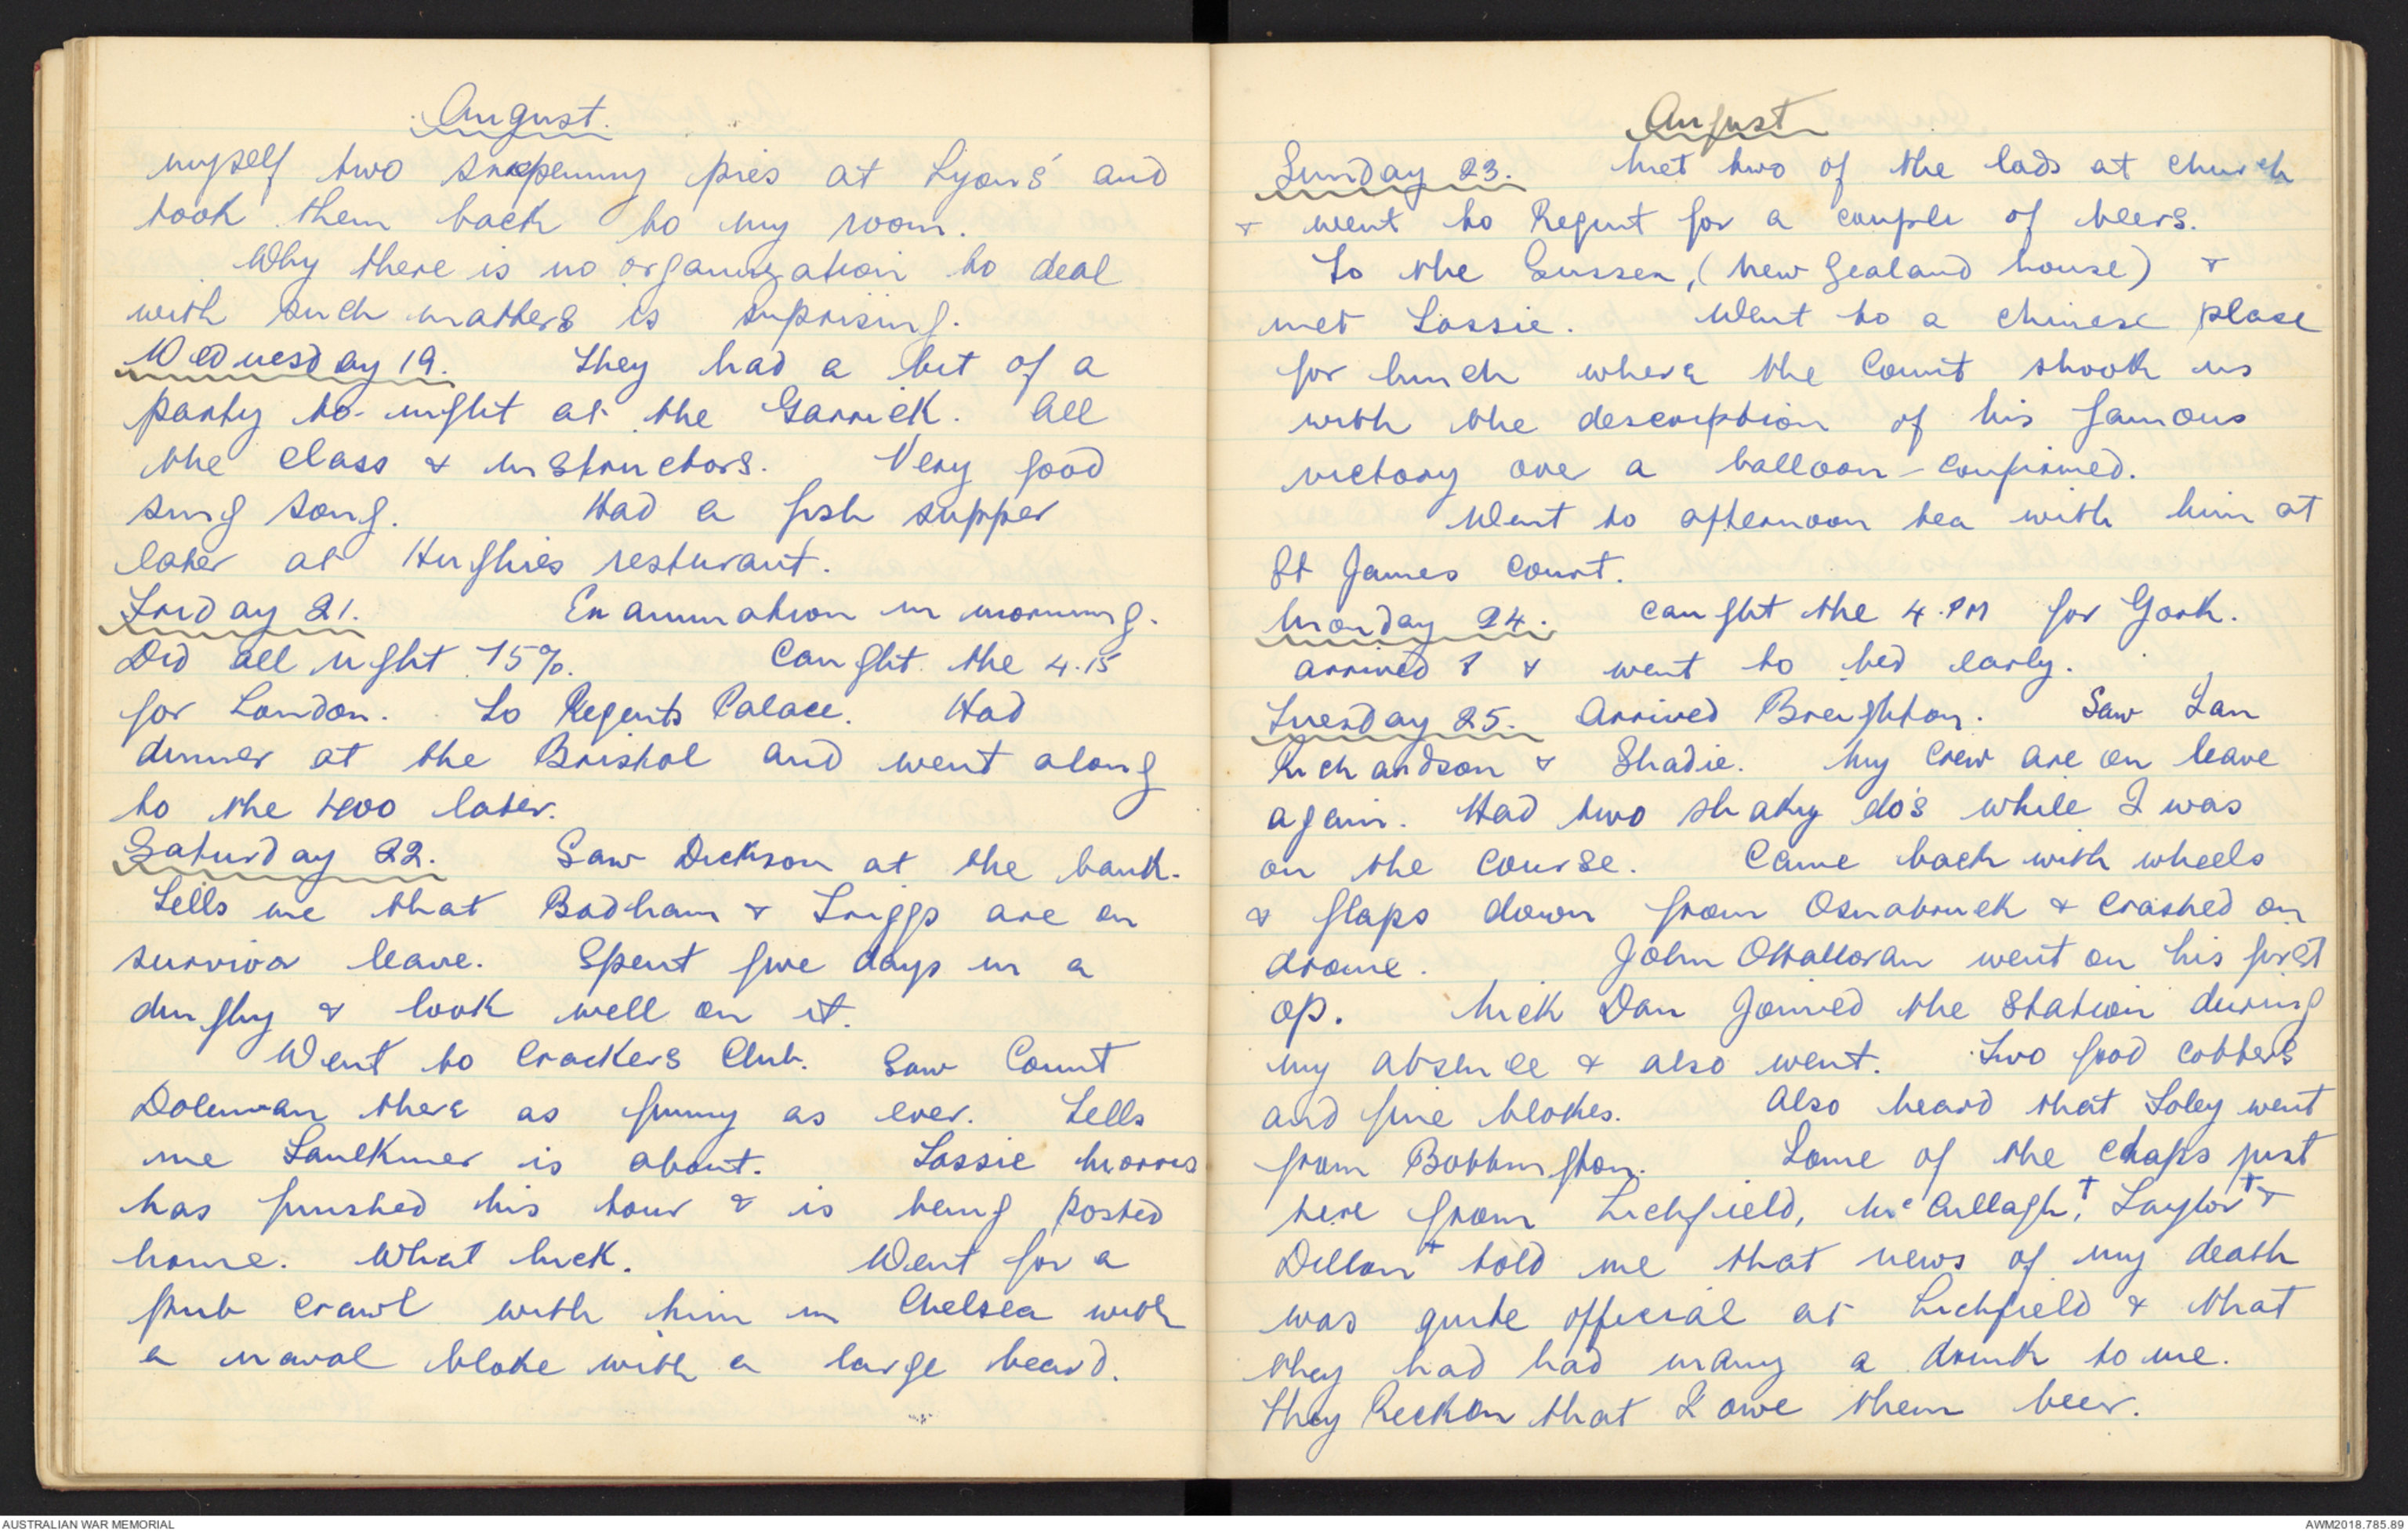 August.
myself two sixpenny pies at Lyons' and
took them back to my room.
Why there is no organization to deal
with such matters is suprising.
Wednesday 19. They had a bit of a
party to-night at the Garrick. All
the class & instructors. Very good
sing song. Had a fish supper
later at Hughies resturant.
Friday 21. Examination in morning.
Did all right 75%. Caught the 4.15
for London. To Regents Palace. Had
dinner at the Bristol and went along
to the 400 later.
Saturday 22. Saw Dickson at the bank.
Tells me that Badham & Triggs are on
survivor leave. Spent five days in a
dinghy & look well on it.
Went to Crackers Club. Saw Count
Dolenvan there as funny as ever. Tells
me Faulkner is about. Lassie Morris
has finished his tour & is being posted
home. What luck. Went for a
pub crawl with him in Chelsea with
a naval bloke with a large beard.
August
Sunday 23. Met two of the lads at church
& went to Regent for a couple of beers.
To the Sussex, (New Zealand house) &
met Lassie. Went to a chinese place
for lunch where the Count shook us
with the description of his famous
victory ove a balloon - confirmed.
Went to afternoon tea with him at
St James Court.
Monday 24. Caught the 4.PM for York.
arrived 8 & went to bed early.
Tuesday 25. Arrived Breighton. Saw Ian
Richardson & Shadie. My crew are on leave
again. Had two shaky do's while I was
on the course. Came back with wheels
& flaps down from Osnabruck & crashed on
drome. John OHalloran went on his first
op. Mick Dan joined the station during
my absence & also went. Two good cobbers
and fine blokes. Also heard that Foley went
from Bottingfon. Some of the chaps just
here from Lichfield, McCullagh,† Taylor† &
Dillon† told me that news of my death
was quite official at Lichfield & that
they had had many a drink to me.
They Reckon that I owe them beer.
AUSTRALIAN WAR MEMORIAL
AWM2018.785.89